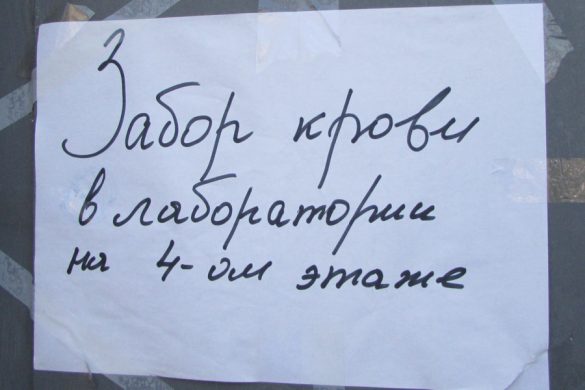 Забор крови
в лаборатории
на 4-ом этаже